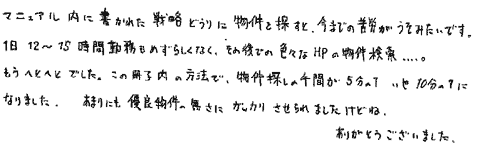 マニュアル内に書かれた戦略どうりに物件を探すと、今までの苦労がうそみたいです。
1日12〜15時間勤務もめずらしくなく、その後での色々なHPの物件検索....。
もうへとへとでした。この冊子内の方法で、物件探しの手間が5分の1 いや10分の1に
なりました。 あまりにも優良物件の無さにガッカリさせられましたけどね。
ありがとうございました。